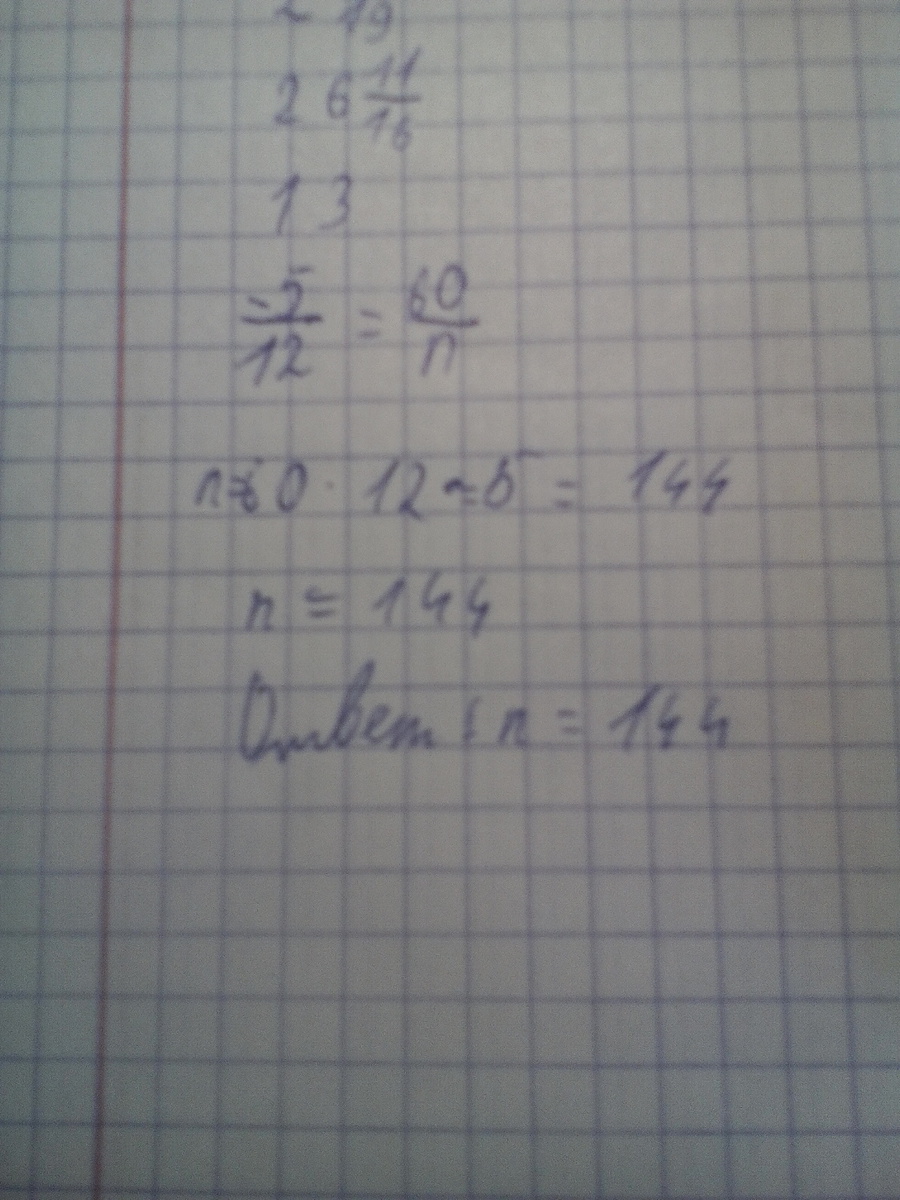 ~ 19
26 11/16
13
-5/12 = 60/n
n=60 · 12 ÷ 5 = 144
n = 144
Ответ: n = 144